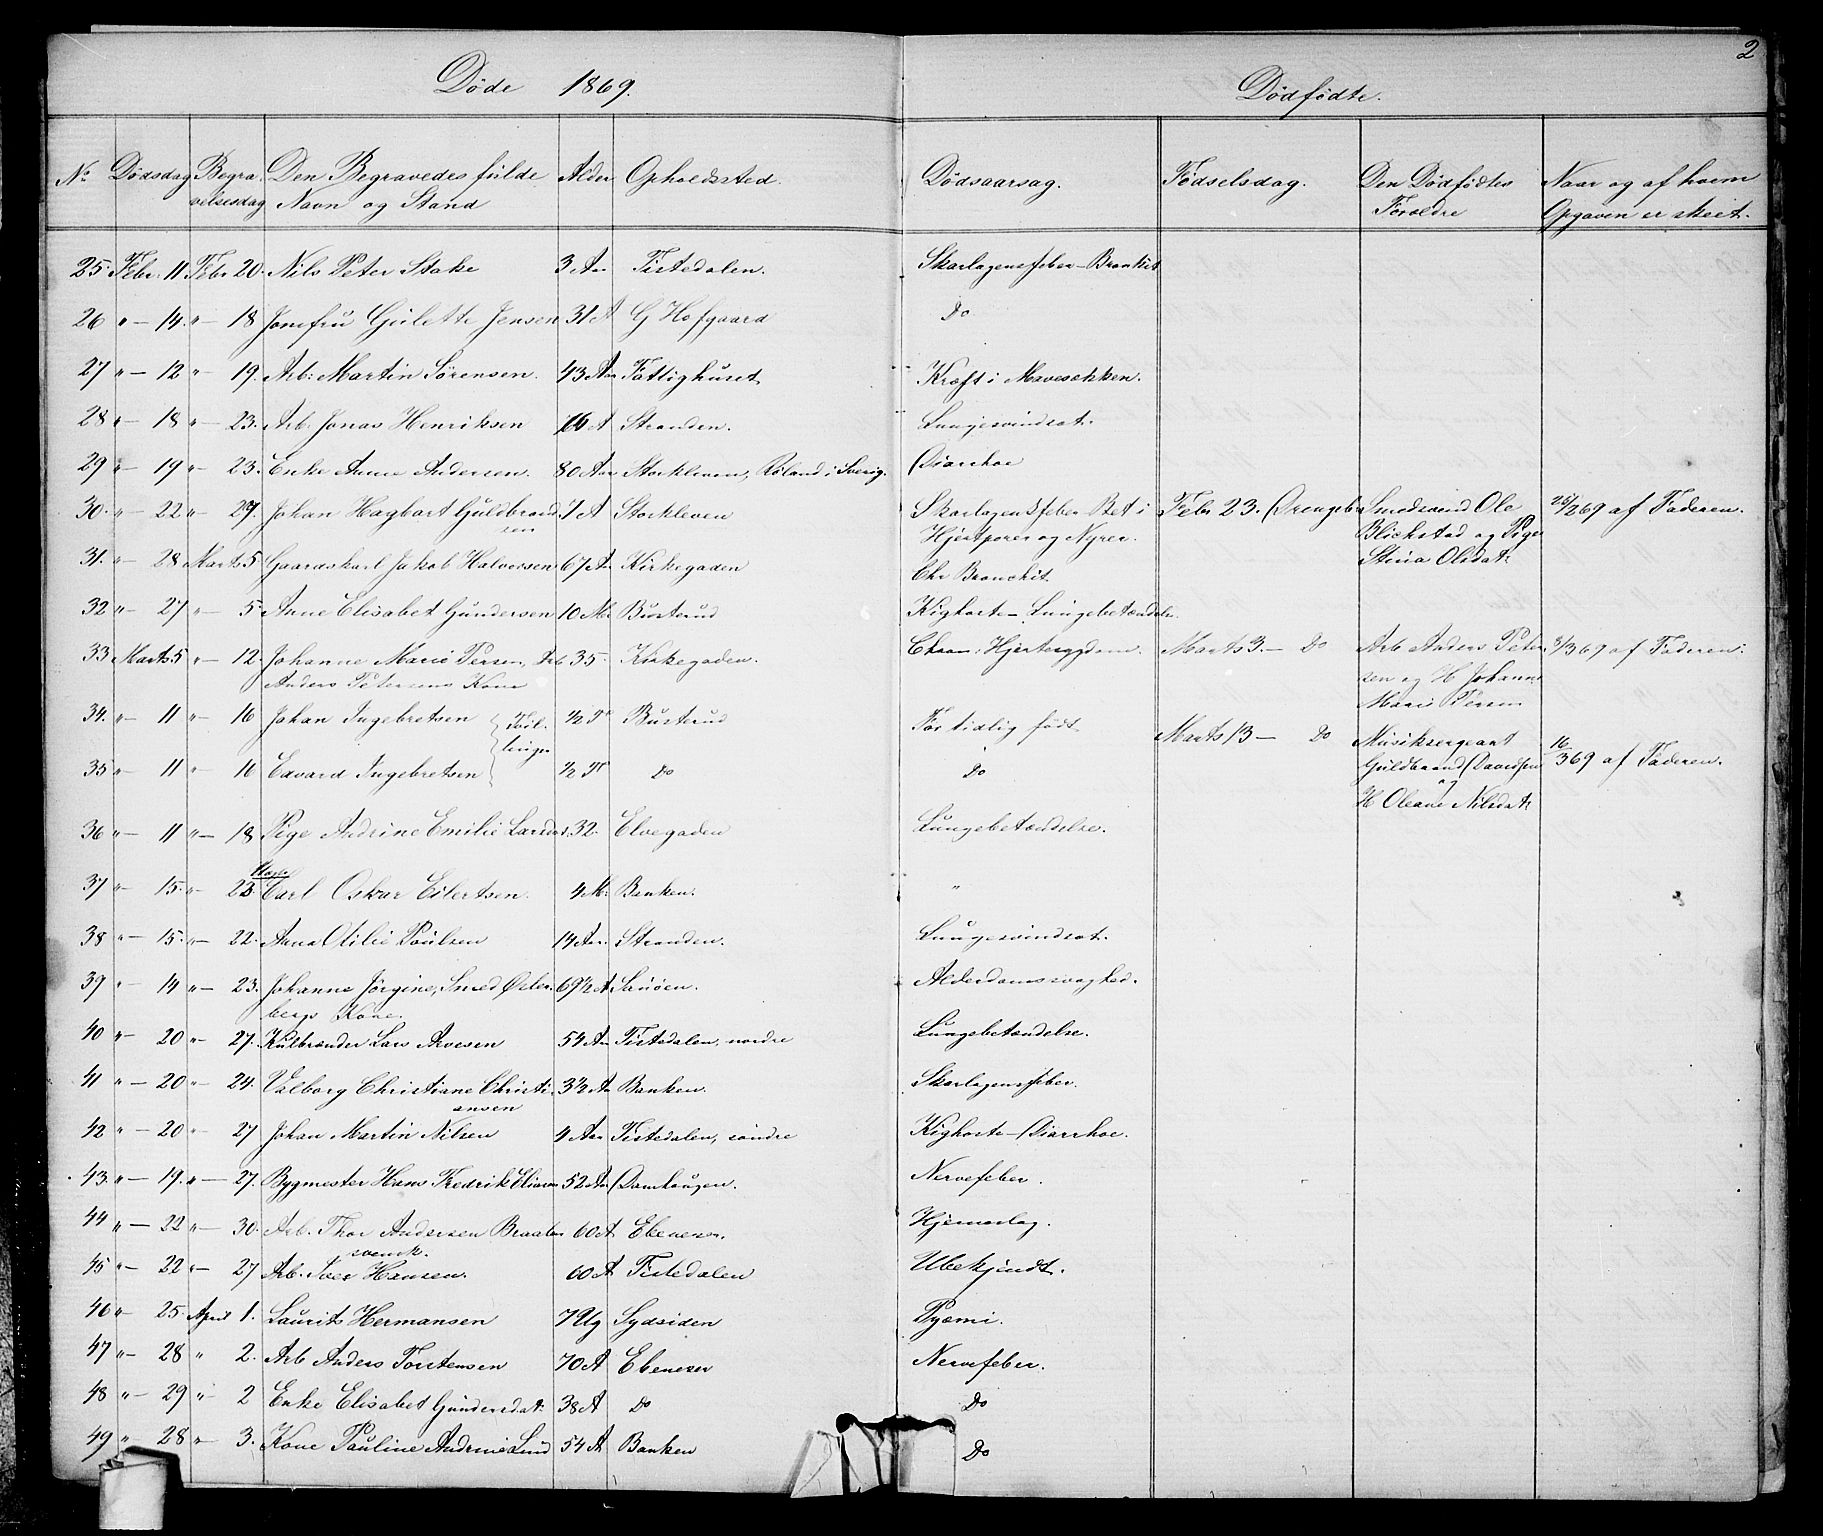 2
Døde 1869. Dødfødte.
No Dødsdag Begravelsesdag Den Begravedes fulde Navn og Stand Alder Opholdssted. Dødsaarsag. Fødselsdag. Den Dødfødtes Forældre Naar og af hvem Opgaven er skeet.
25. Febr. 11 Febr 20. Nils Peter Stake 3 Aar Tistedalen. Skarlagensfeber - Bronkit
26 " - 14. " - 18 Jomfru Gulette Jensen 31 A G Hofgaard Do
27 " - 12 " - 19. Arb: Martin Sørensen. 43 Aar Fattighuset Kræft i Mavesækken.
28 " - 18 " - 23. Arb. Jonas Henriksen A Stranden. Lungesvindsot.
29 " - 19 " - 23. Enke Anne Andersen. 80 Aar Storkleven, i Sverig. Diarrhoe
30. " - 22 " - 27. Johan Hagbart Guldbrand 7 A Storkleven Skarlagensfeber Bet i Febr 23. Drengebr Smedsvend Ole 26/2 69 af Faderen.
sen Hjertporer og Nyrer. Blichstad og Pige
31. " - 28 Marts 5 Gaardskarl Jakob Halvorsen 67 Aar Kirkegaden Chr Bronchit Stina Olsdat:
32 " - 27 " - 5. Anne Elisabet Gundersen 10 Mr Busterud Kighoste - Lungebetændelse
33 Marts 5 " - 12. Johanne Marie Persen, Arb 35. Kirkegaden. Chron: Hjertesygdom Marts 3. - Do Arb Anders Peter 8/3 69 af Faderen.
Anders Petersens Kone sen og H Johanne
Marie Persen
34. " - 11 " - 16 Johan Ingebretsen { Tvil- 1/2 T Busterud For tidlig født Marts 13 - Do Musiksergeant 16/3 69 af Faderen.
lenger
35 " - 11 " - 16 Edvard Ingebretsen 1/2 T Do Do Guldbrand Davidsen
og
H Oleane Nilsdat:
36 " - 11 " - 18 Pige Andrine Emilie Larsdat. 32. Elvegaden Lungebetændelse.
37 " - 15. " - 23. Carl Oskar Eilertsen. 4 M. Banken. "
38 " - 15. " - 22. Anna Otilie Poulsen 14 Aar. Stranden. Lungesvindsot.
39 " - 14 " - 23. Johanne Jørgine, Smed Øster- 69 1/2 A Sauøen. Alderdomssvaghed.
bergs Kone.
40 " - 20 " - 27. Kulbrænder Lars Arvesen 54 Aar Tistedalen, nordre Lungebetændelse.
41 " - 20 " - 24. Valborg Christiane Christi 3 1/2 Aar Banken. Skarlagensfeber.
ansen
42 " - 20 " - 27 Johan Martin Nilsen 4 Aar Tistedalen, søndre Kighoste - Diarrhoe.
43. " - 19. " - 27. Bygmester Hans Fredrik Eliasen 52 Aar Damhaugen. Nervefeber.
44 " - 22 " - 30. Arb. Thor Andersen Braaten 60 A Ebeneser. Hjerneslag.
svensk.
45 " - 22 " - 27 Arb. Iver Hansen. 60 A Tistedalen Ubekjendt.
46 " - 25. April 1. Laurits Hermansen 7 Ug Sydsiden Pyæmi.
47 " - 28 " 2. Arb Anders Torstensen 70 A Ebeneser Nervefeber.
48 " - 29 " - 2 Enke Elisabet Gundersdat: 38 A Do Do
49 " - 28 " - 3. Kone Pauline Andrine Lund 54 A Banken Do